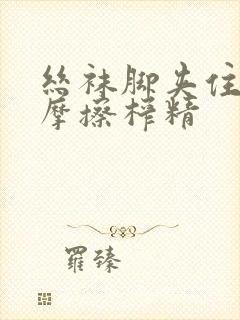 絲袜脚夹住
摩擦榨精
羅臻